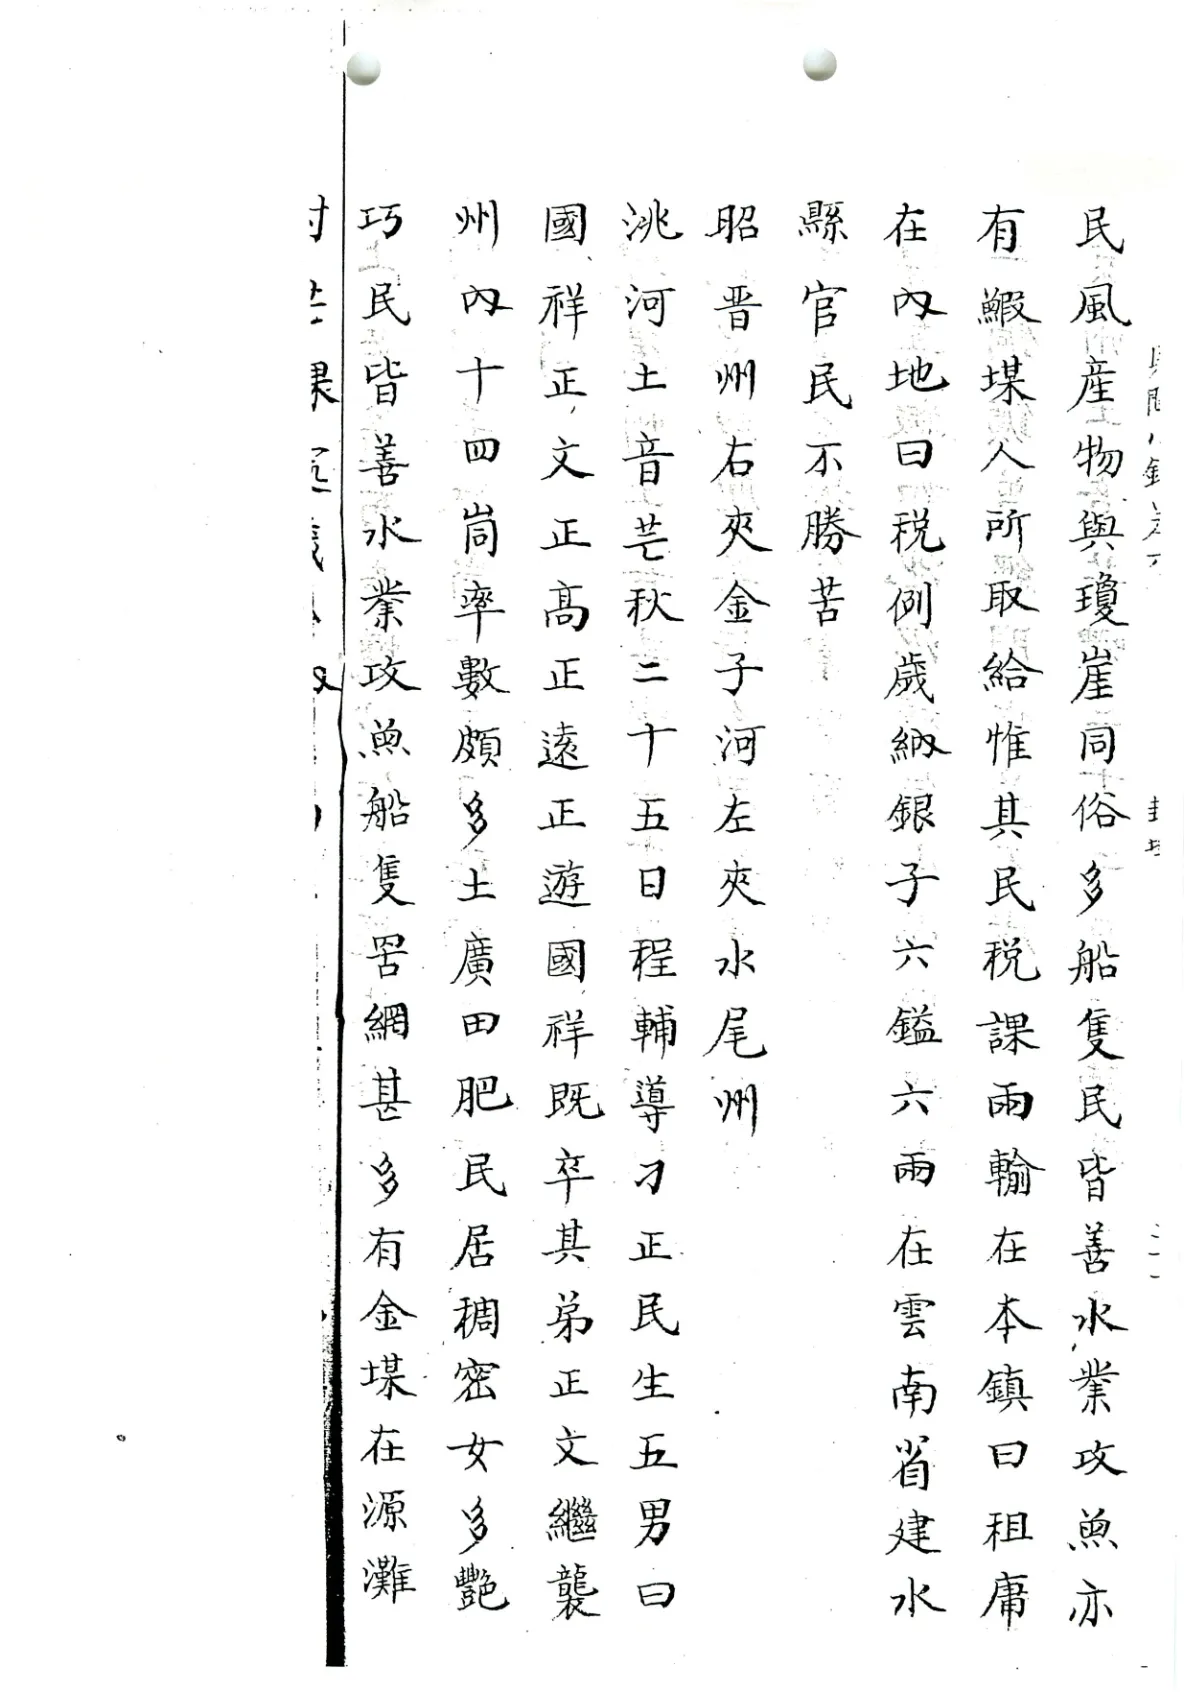 民風産物與瓊崖同俗多船隻民皆善水業攻魚亦
有鰕堞人所取給惟其民税課兩輸在本鎮曰租庸
在內地曰税例歲納銀子六鎰六兩在雲南省建水
縣官民不勝苦
昭晋州右夾金子河左夾水尾州
洮河土音芒秋二十五日程輔導刁正民生五男曰
國祥正文正高正遠正遊國祥既卒其弟正文繼襲
州內十四峝率數頗多土廣田肥民居稠密女多艷
巧民皆善水業攻魚船隻罟網甚多有金堞在源灘